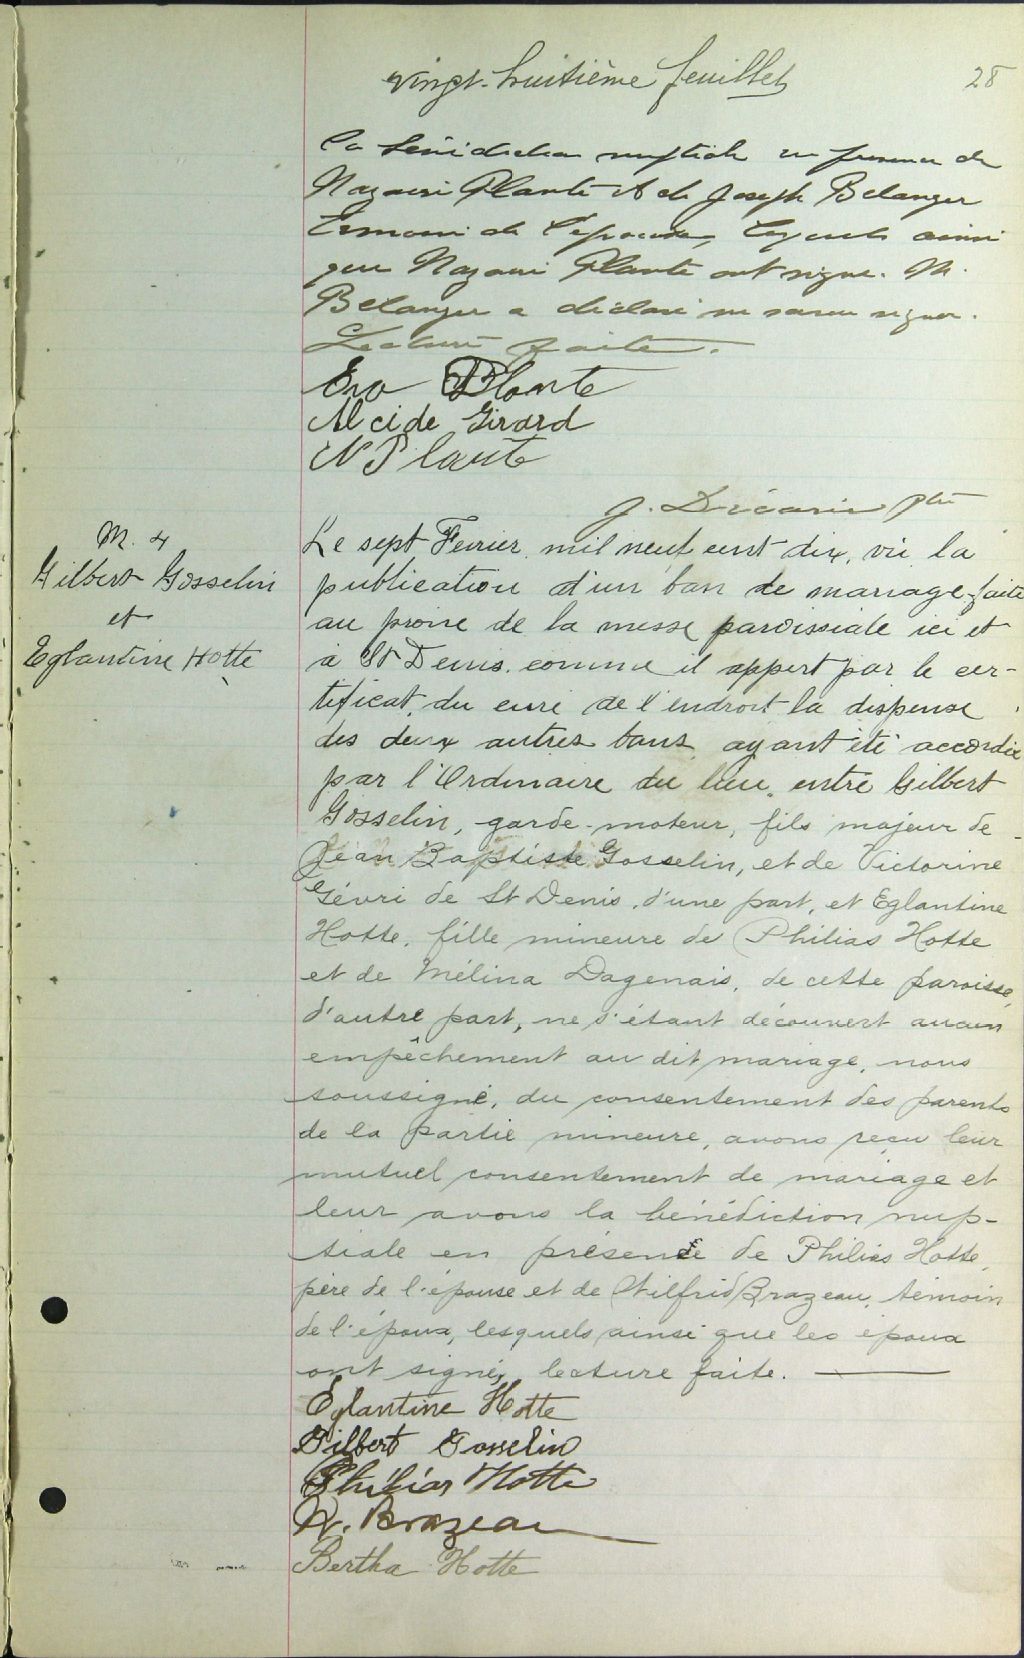 vingt-huitième feuillet 28
la bénédiction nuptiale en présence de
Nazaire Plante et de Joseph Belanger
témoin de l'épouse, lesquels ainsi
que Nazaire Plante ont signé. M.
Belanger a déclaré ne savoir signer.
Lecture faite.
Eva Plante
Alcide Girard
N Plante
J. Décarie Ptre
M. 4
Gilbert Gosselin
et
Eglantine Hotte
Le sept Fevrier mil neuf cent dix, vu la
publication d'un ban de mariage faite
au prone de la messe paroissiale ici et
à St Denis comme il appert par le cer-
tificat du curé de l'endroit la dispense
des deux autres bans ayant été accordée
par l'Ordinaire du lieu, entre Gilbert
Gosselin, garde-moteur, fils majeur de
Jean Baptiste Gosselin, et de Victorine
Gévri de St Denis, d'une part, et Eglantine
Hotte, fille mineure de Philias Hotte
et de Mélina Dagenais, de cette paroisse,
d'autre part, ne s'étant découvert aucun
empêchement au dit mariage, nous
soussigné, du consentement des parents
de la partie mineure, avons reçu leur
mutuel consentement de mariage et
leur avons la bénédiction nup-
tiale en présence de Philias Hotte,
père de l'épouse et de Wilfrid Brazeau, témoin
de l'époux, lesquels ainsi que les époux
ont signé, lecture faite.
Eglantine Hotte
Gilbert Gosselin
Philias Hotte
W. Brazeau
Bertha Hotte